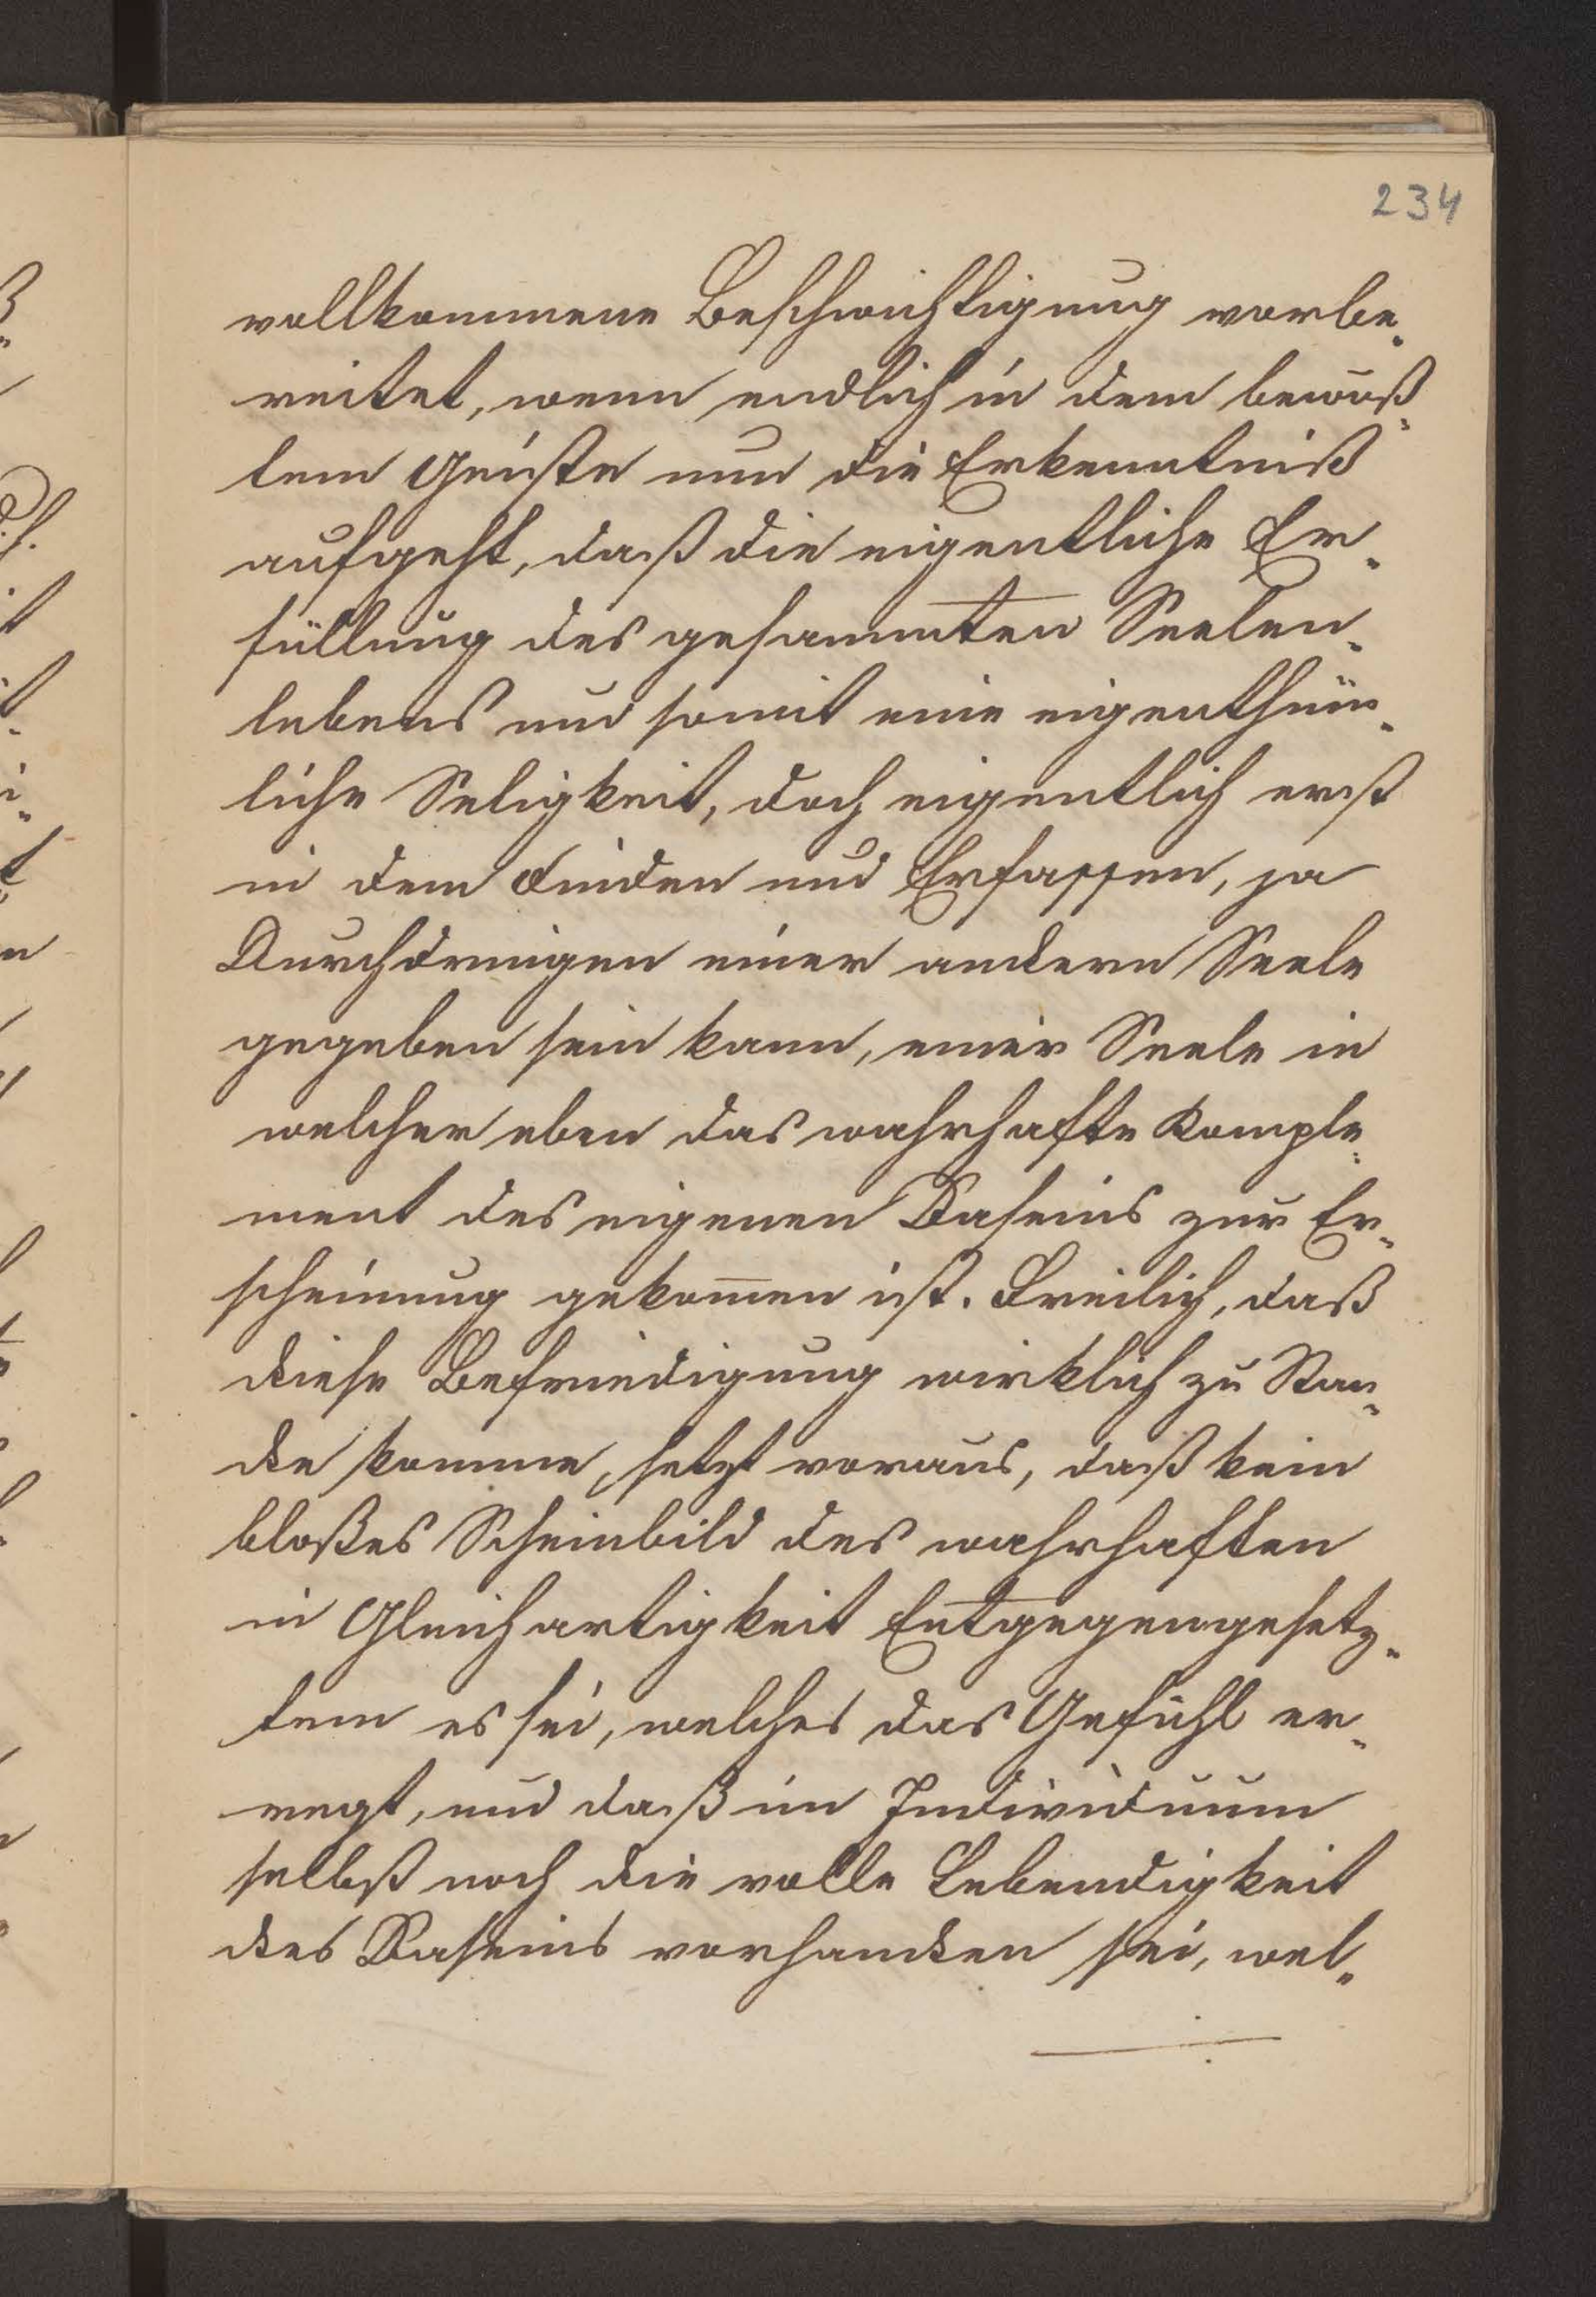 234
vollkommene Beschwichtigung vorbe-
reitet, wenn endlich in dem bewuß-
tem Geiste nun die Erkenntniß
aufgeht, daß die eigentliche Er-
füllung des gesammten Seelen-
lebens und somit eine eigenthüm-
liche Seligkeit, doch eigentlich erst
in dem Finden und Erfassen, ja
Durchdringen einer andern Seele
gegeben sein kann, einer Seele in
welcher eben das wahrhafte Komple-
ment des eigenen Daseins zur Er-
scheinung gekom̅en ist. Freilich, daß
diese Befriedigung wirklich zu Stan-
de komme, setzt voraus, daß kein
bloßes Scheinbild des wahrhaften
in Gleichartigkeit Entgegengesetz-
tem es sei, welches das Gefühl er-
regt, und daß im Individuum
selbst noch die volle Lebendigkeit
des Daseins vorhanden sei, wel-